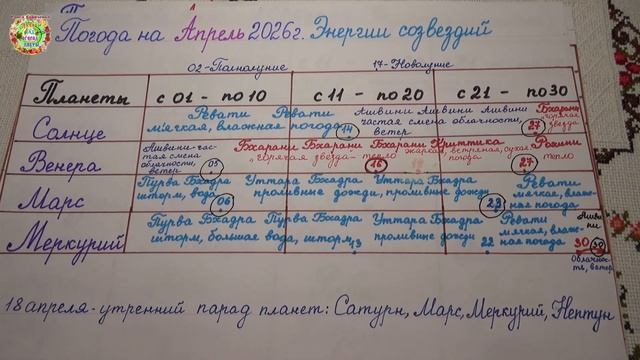 Погода на Апрель 2026г. Энергии созвездий
02-Полнолуние 17-Новолуние
Планеты с 01 - по 10 с 11 - по 20 с 21 - по 30
Солнце Ревати Ревати Ашвини Ашвини Ашвини Бхарани
мягкая, влажная погода 14 частая смена облачности, ветер 27 горячая звезда
Венера Ашвини-частая смена облачности, ветер 03 Бхарани Бхарани Бхарани Криттика Рохини
"горячая звезда"- тепло 16 жаркая, ветряная, сухая погода 27 тепло
Марс Пурва Бхадра Уттара Бхадра Уттара Бхадра Ревати
шторм, вода 06 проливные дожди, проливные дожди 29 мягкая, влажная погода
Меркурий Пурва Бхадра Пурва Бхадра Уттара Бхадра Ревати Ашвини
шторм, большая вода, шторм, 13 проливные дожди 22 мягкая, влажная погода 30 30
Облачность, ветер
18 апреля-утренний парад планет: Сатурн, Марс, Меркурий, Нептун